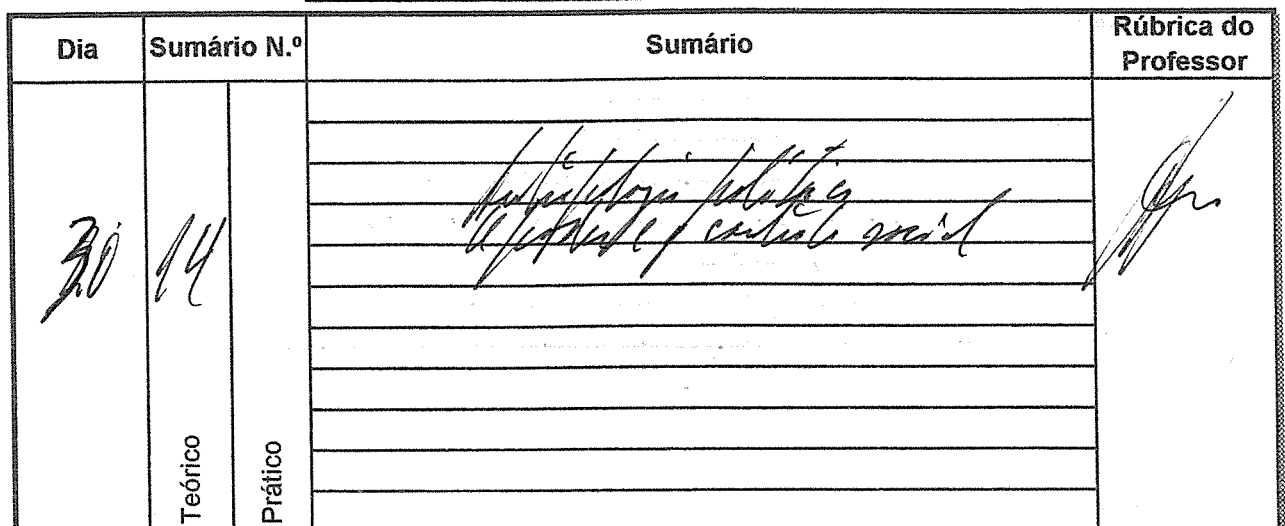 Dia Sumário N.º Sumário Rúbrica do Professor
30 14
Antropologia política
e controlo social
Teórico Prático